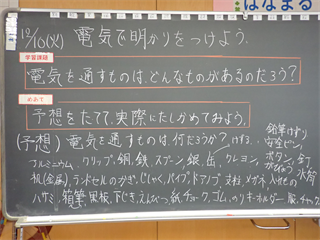 はなまる
12/10(火) 電気で明かりをつけよう.
学習課題
電気を通すものは、どんなものがあるのだろう?
めあて
予想をたてて、実際にたしかめてみよう。
(予想) 電気を通すものは、何だろうか?
アルミニウム、クリップ、銅、鉄、スプーン、銀、缶、クレヨン、
机(金属)、ランドセルのかぎ、じしゃく、パイプ、ドアノブ、
メガネ、
水筒
ハサミ、
黒板、下じき、えんぴつ、紙、チョーク、ゴム、のり、キーホルダー、服、
鉛筆けずり
安全ピン、
ボタン、釘